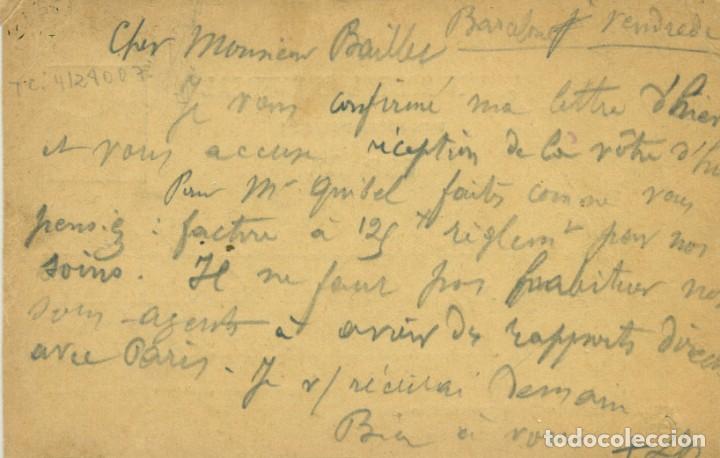 Barcelone Vendredi
Cher Monsieur
Tc: 4128007
Je vous confirme ma lettre d'hier
et vous accuse réception de la vôtre d'hi
Pour Mr Quibel faits comme vous
pensiez : facture à règlemt par nos
soins. Il ne faut pas habituer no
sous-agents à avoir des rapports direc
avec Paris. Je v/ récrirai demain
Bien à vous
todocoleccion.net